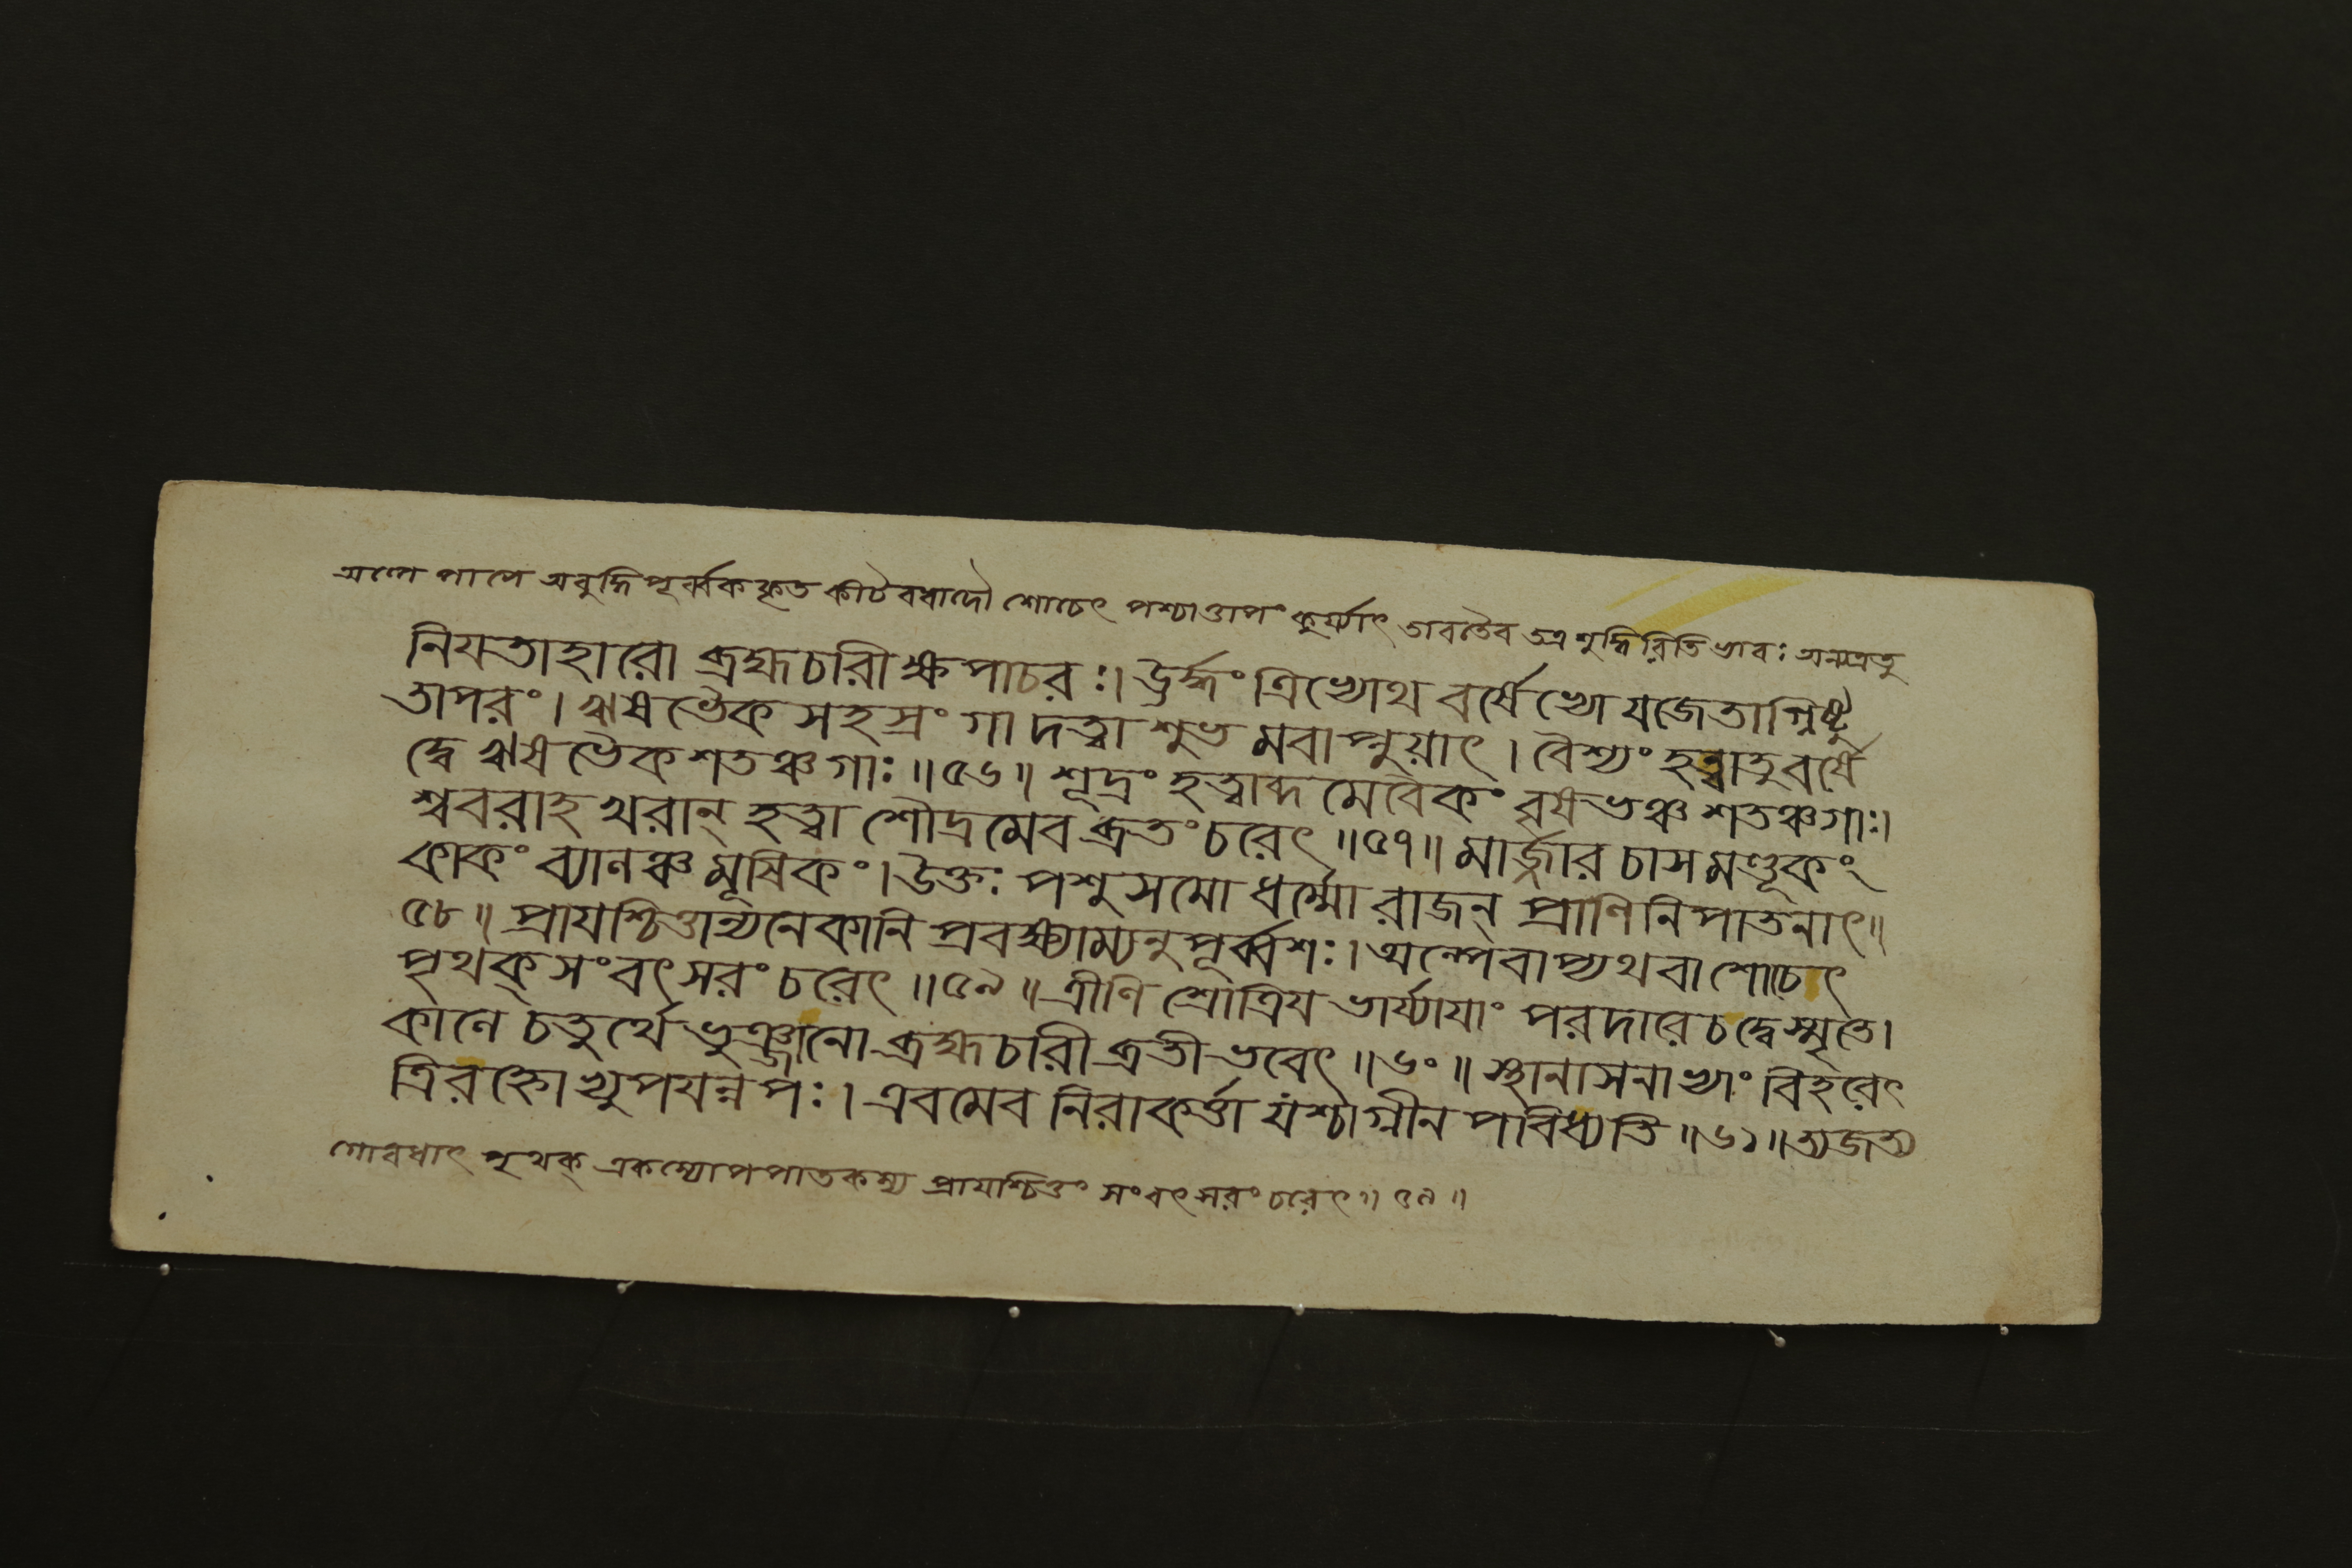 অল্পে পাপে অবুদ্ধিপূর্ব্বককৃত কীটবধাদৌ শোচেৎ পশ্চাত্তাপং কুর্য্যাৎ তাবতৈব তত্র শুদ্ধিরিতিভাবঃ অন্যত্রতু
নিযতাহারো ব্রহ্মচারীক্ষপাচরঃ। ঊর্দ্ধং ত্রিভ্যোথ বর্ষেভ্যো যজেতাগ্নিষ্টু
তাপরং। ঋষভৈকসহস্রং গা দত্ত্বা শুভমবাপ্নুয়াৎ। বৈশ্যং হত্বাতুবর্ষে
দ্বে ঋষভৈকশতঞ্চগাঃ॥৫৬॥ শূদ্রং হত্বাব্দমেবৈকং বৃষভঞ্চ শতঞ্চগাঃ।
শ্ববরাহখরান্ হত্বা শৌদ্রমেব ব্রতংচরেৎ॥৫৭॥ মার্জ্জারচাসমণ্ডূকং
কাকং ব্যালঞ্চ মূষিকং। উক্তঃ পশুসমো ধর্ম্মো রাজন্ প্রাণিনিপাতনাৎ॥
৫৮॥ প্রাযশ্চিত্তান্যনেকানি প্রবক্ষ্যাম্যনুপূর্ব্বশঃ। অল্পেবাপ্যথবা শোচেৎ
পৃথক্ সংবৎসরং চরেৎ॥৫৯॥ ত্রীণি শ্রোত্রিয ভার্য্যাযাং পরদারেচদ্বেস্মৃতে।
কালে চতুর্থেভুঞ্জানো ব্রহ্মচারী ব্রতীভবেৎ॥৬০॥ স্থানাসনাভ্যাং বিহরেৎ
ত্রিরহ্নোভ্যুপযন্নপঃ। এবমেব নিরাকর্ত্তা যশ্চাগ্নীনপবিধ্যতি॥৬১॥ ত্যজত্য
গোবধাৎ পৃথক্ একস্যোপপাতকস্য প্রাযশ্চিত্তং সংবৎসরং চরেৎ॥৫৯॥